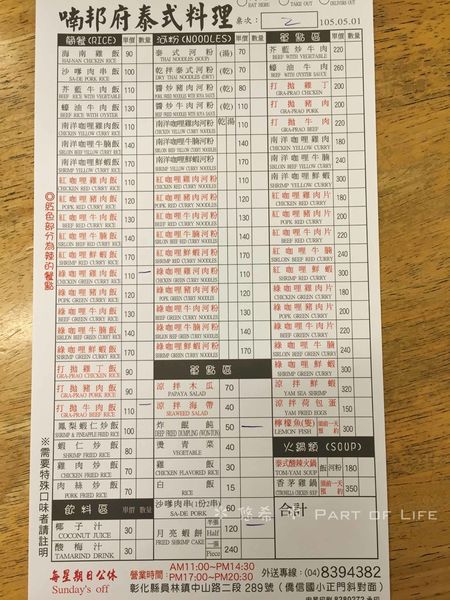 EAT HERE
TAKE OUT
喃邦府泰式料理
桌次：
2
105.05.01
簡餐(RICE) 單價 數量
海南雞飯 90
HAI-NAN CHICKEN RICE
沙嗲肉串飯
SA-DE PORK RICE
芥藍牛肉飯
BEEF RICE WITH VEGETABLE
蠔油牛肉飯
BEEF RICE WITH OYSTER
南洋咖哩雞肉飯
CHICKEN YELLOW CURRY RICE
南洋咖哩牛腩飯
南洋咖哩鮮蝦飯
SHRIMP YELLOW CURRY RICE
紅咖哩雞肉飯 110
CHICKEN RED CURRY RICE
紅咖哩豬肉飯
PORK RED CURRY RICE
紅咖哩牛肉飯
BEEF RED CURRY RICE
紅咖哩牛腩飯
SIRLOIN BEEF RED CURRY RICE
紅咖哩鮮蝦飯
SHRIMP RED CURRY RICE
綠咖哩雞肉飯 110
CHICKEN GREEN CURRY RICE
綠咖哩豬肉飯
PORK GREEN CURRY RICE
綠咖哩牛肉飯
BEEF GREEN CURRY RICE
綠咖哩牛腩飯
SIRLOIN BEEF GREEN CURRY RICE
綠咖哩鮮蝦飯
SHRIMP GREEN CURRY RICE
打拋雞飯
GRA-PRAO CHICKEN RICE
打拋豬肉飯 110
GRA-PRAO PORK RICE
打拋牛肉飯 110
GRA-PRAO BEEF RICE
鳳梨蝦仁炒飯 100
SHRIMP & PINEAPPLE FRIED RICE
蝦仁炒飯
SHRIMP FRIED RICE
雞肉炒飯
CHICKEN FRIED RICE
肉絲炒飯
PORK FRIED RICE
飲料區 單價 數量
椰子汁 30
COCONUT JUICE
酸梅汁 30
TAMARIND DRINK
◎紅色部分為辣的餐點
※需要特殊口味者請註明
河粉(NOODLES) 單價 數量
泰式河粉(湯) 70
THAI NOODLES (SOUP)
乾拌泰式河粉(乾) 70
DRY THAI NOODLES
醬炒豬肉河粉(乾) 80
醬炒牛肉河粉(乾)
南洋咖哩雞肉河粉 乾湯
CHICKEN YELLOW CURRY NOODLES
南洋咖哩牛腩河粉 140
南洋咖哩鮮蝦河粉 170
SHRIMP YELLOW CURRY NOODLES
紅咖哩雞肉河粉 110
CHICKEN RED CURRY NOODLES
紅咖哩豬肉河粉 110
PORK RED CURRY NOODLES
紅咖哩牛肉河粉 130
BEEF RED CURRY NOODLES
紅咖哩牛腩河粉 140
SIRLOIN BEEF RED CURRY NOODLES
紅咖哩鮮蝦河粉 170
SHRIMP RED CURRY NOODLES
綠咖哩雞肉河粉 110
CHICKEN GREEN CURRY NOODLES
綠咖哩豬肉河粉 110
PORK GREEN CURRY NOODLES
綠咖哩牛肉河粉 130
BEEF GREEN CURRY NOODLES
綠咖哩牛腩河粉 140
SIRLOIN BEEF GREEN CURRY NOODLES
綠咖哩鮮蝦河粉 170
SHRIMP GREEN CURRY NOODLES
單點區
涼拌木瓜 70
PAPAYA SALAD
涼拌海帶 40
SEAWEED SALAD
炸餛飩 50
DEEP FRIED DUMPLING (WONTON)
燙青菜 40
VEGETABLE
雞飯 15
CHICKEN FLAVORED RICE
白飯 15
RICE
沙嗲肉串(1份2串) 60
SA-DE PORK
月亮蝦餅 半張 120
FRIED SHRIMP CAKE
一張 Piece 240
單點區 單價 數量
芥藍炒牛肉 220
BEEF WITH VEGETABLE
蠔油牛肉 260
BEEF WITH OYSTER SAUCE
打拋雞丁 210
GRA-PRAO CHICKEN
打拋豬肉 210
GRA-PRAO PORK
打拋牛肉 220
GRA-PRAO BEEF
南洋咖哩雞肉 200
CHICKEN YELLOW CURRY
南洋咖哩牛腩
南洋咖哩鮮蝦 300
SHRIMP YELLOW CURRY
紅咖哩雞肉片 200
CHICKEN RED CURRY
紅咖哩豬肉片 200
PORK RED CURRY
紅咖哩牛肉片 220
BEEF RED CURRY
紅咖哩牛腩
SIRLOIN BEEF RED CURRY
紅咖哩鮮蝦 300
SHRIMP RED CURRY
綠咖哩雞肉片 200
CHICKEN GREEN CURRY
綠咖哩豬肉片 200
PORK GREEN CURRY
綠咖哩牛肉片 220
BEEF GREEN CURRY
綠咖哩牛腩
SIRLOIN BEEF GREEN CURRY
綠咖哩鮮蝦 300
SHRIMP GREEN CURRY
涼拌鮮蝦 300
YAM SEA SHRIMP
涼拌荷包蛋 150
YAM FRIED EGGS
檸檬魚(隻) 300
LEMON FISH
火鍋類(SOUP)
泰式酸辣火鍋 180
TOM-YAM SOUP
香茅雞鍋 350
合計
悠希 Part of Life
每星期日公休
Sunday's off
營業時間：AM11:00~PM14:30
PM17:00~PM20:30
外送專線：(04)8394382
彰化縣員林鎮中山路二段289號（僑信國小正門斜對面）